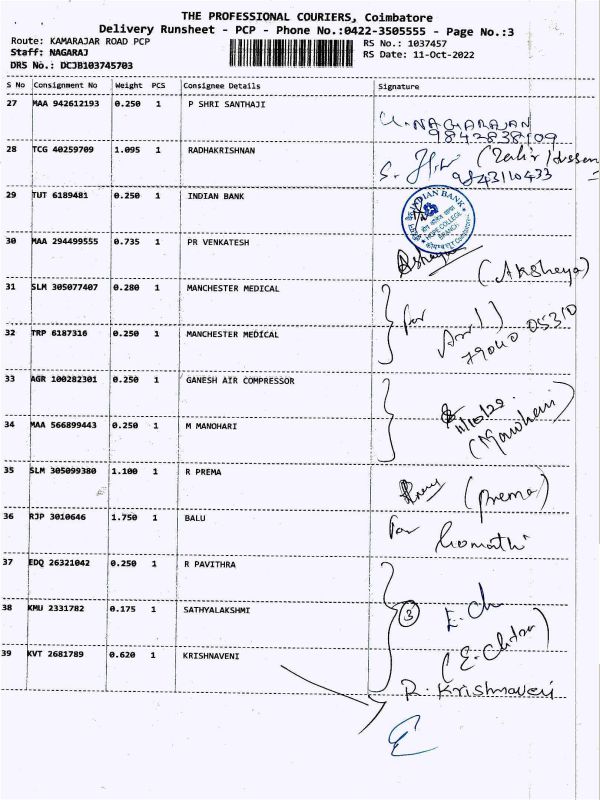 THE PROFESSIONAL COURIERS, Coimbatore
Delivery Runsheet - PCP - Phone No.:0422-3505555 - Page No.:3
Route: KAMARAJAR ROAD PCP
RS No.: 1037457
Staff: NAGARAJ
RS Date: 11-Oct-2022
DRS No.: DCJB103745703
S No Consignment No Weight PCS Consignee Details Signature
27 MAA 942612193 0.250 1 P SHRI SANTHAJI
U. NAGARAJAN
9842838109
28 TCG 40259709 1.095 1 RADHAKRISHNAN
S. (Zakir Hussen
9843110433
29 TUT 6189481 0.250 1 INDIAN BANK
INDIAN BANK
HOPE COLLEGE
BRANCH
30 MAA 294499555 0.735 1 PR VENKATESH
(Aksheya)
31 SLM 305077407 0.280 1 MANCHESTER MEDICAL
for
32 TRP 6187316 0.250 1 MANCHESTER MEDICAL
79040 05310
33 AGR 100282301 0.250 1 GANESH AIR COMPRESSOR
11/10/22
34 MAA 566899443 0.250 1 M MANOHARI
(Manohari)
35 SLM 305099380 1.100 1 R PREMA
(prema)
36 RJP 3010646 1.750 1 BALU
for Gomathi
37 EDQ 26321042 0.250 1 R PAVITHRA
38 KMU 2331782 0.175 1 SATHYALAKSHMI
3 E. Ch
(E. Chitra)
39 KVT 2681789 0.620 1 KRISHNAVENI
R. Krishnaveni